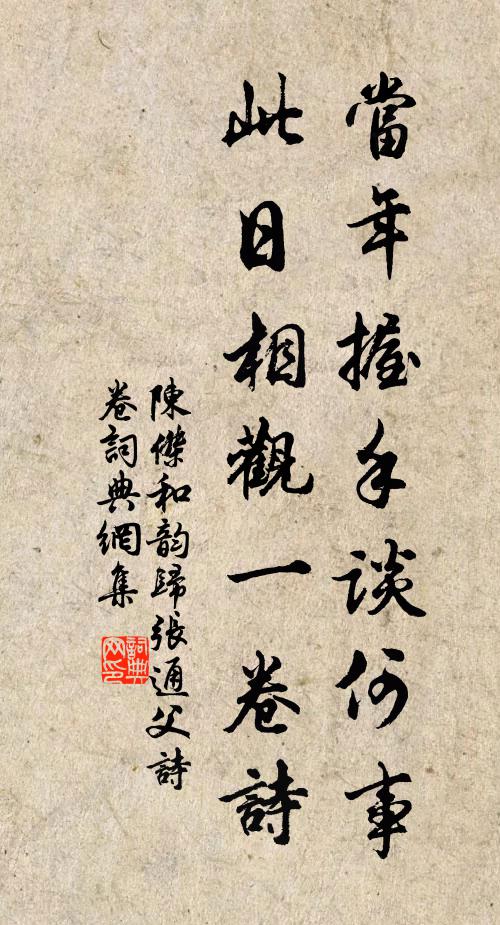 當年握手談何事
此日相觀一卷詩
陳傑和韵歸張通父詩
卷詞典網集
詞典
网印